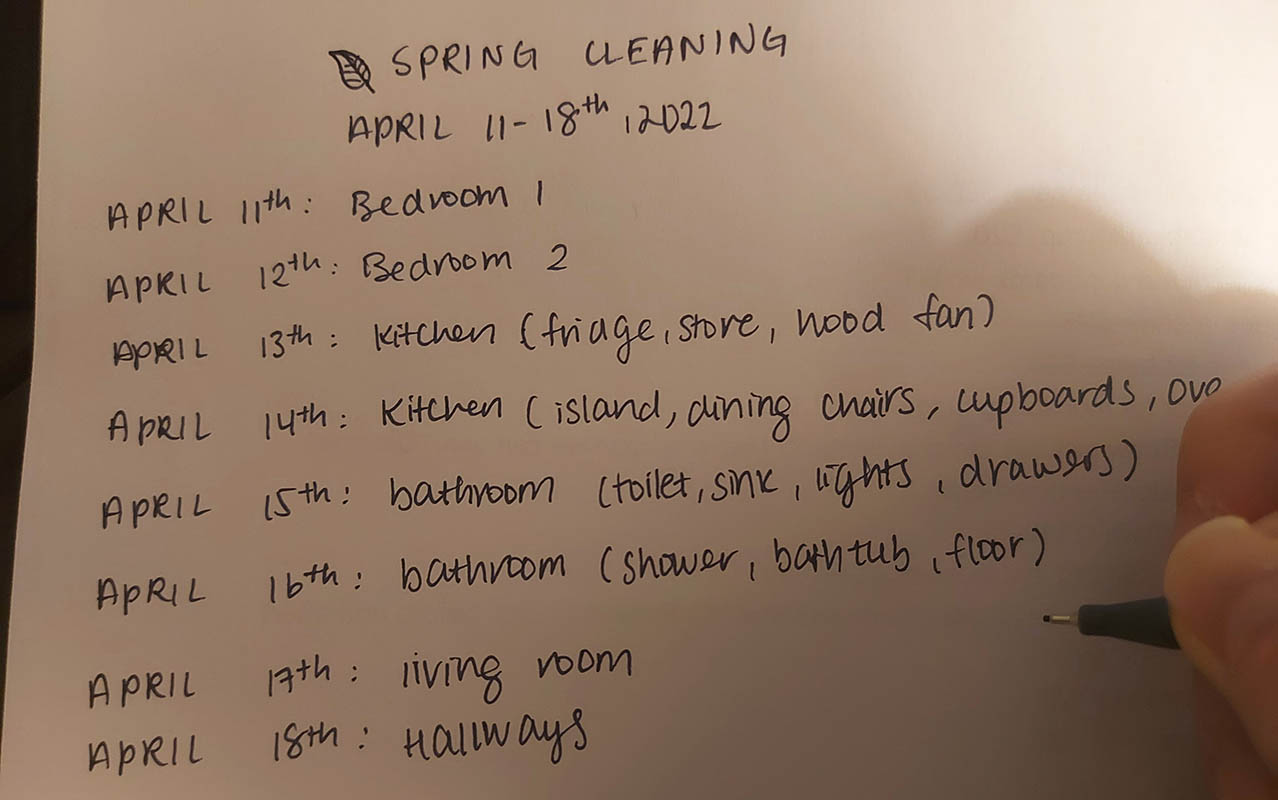 SPRING CLEANING
APRIL 11-18th, 2022
APRIL 11th: Bedroom 1
APRIL 12th: Bedroom 2
APRIL 13th: Kitchen (friage, store, hood fan)
APRIL 14th: Kitchen (island, dining chairs, cupboards, ove
APRIL 15th: bathroom (toilet, sink, lights, drawers)
APRIL 16th: bathroom (shower, bathtub, floor)
APRIL 17th: living room
APRIL 18th: Hallways